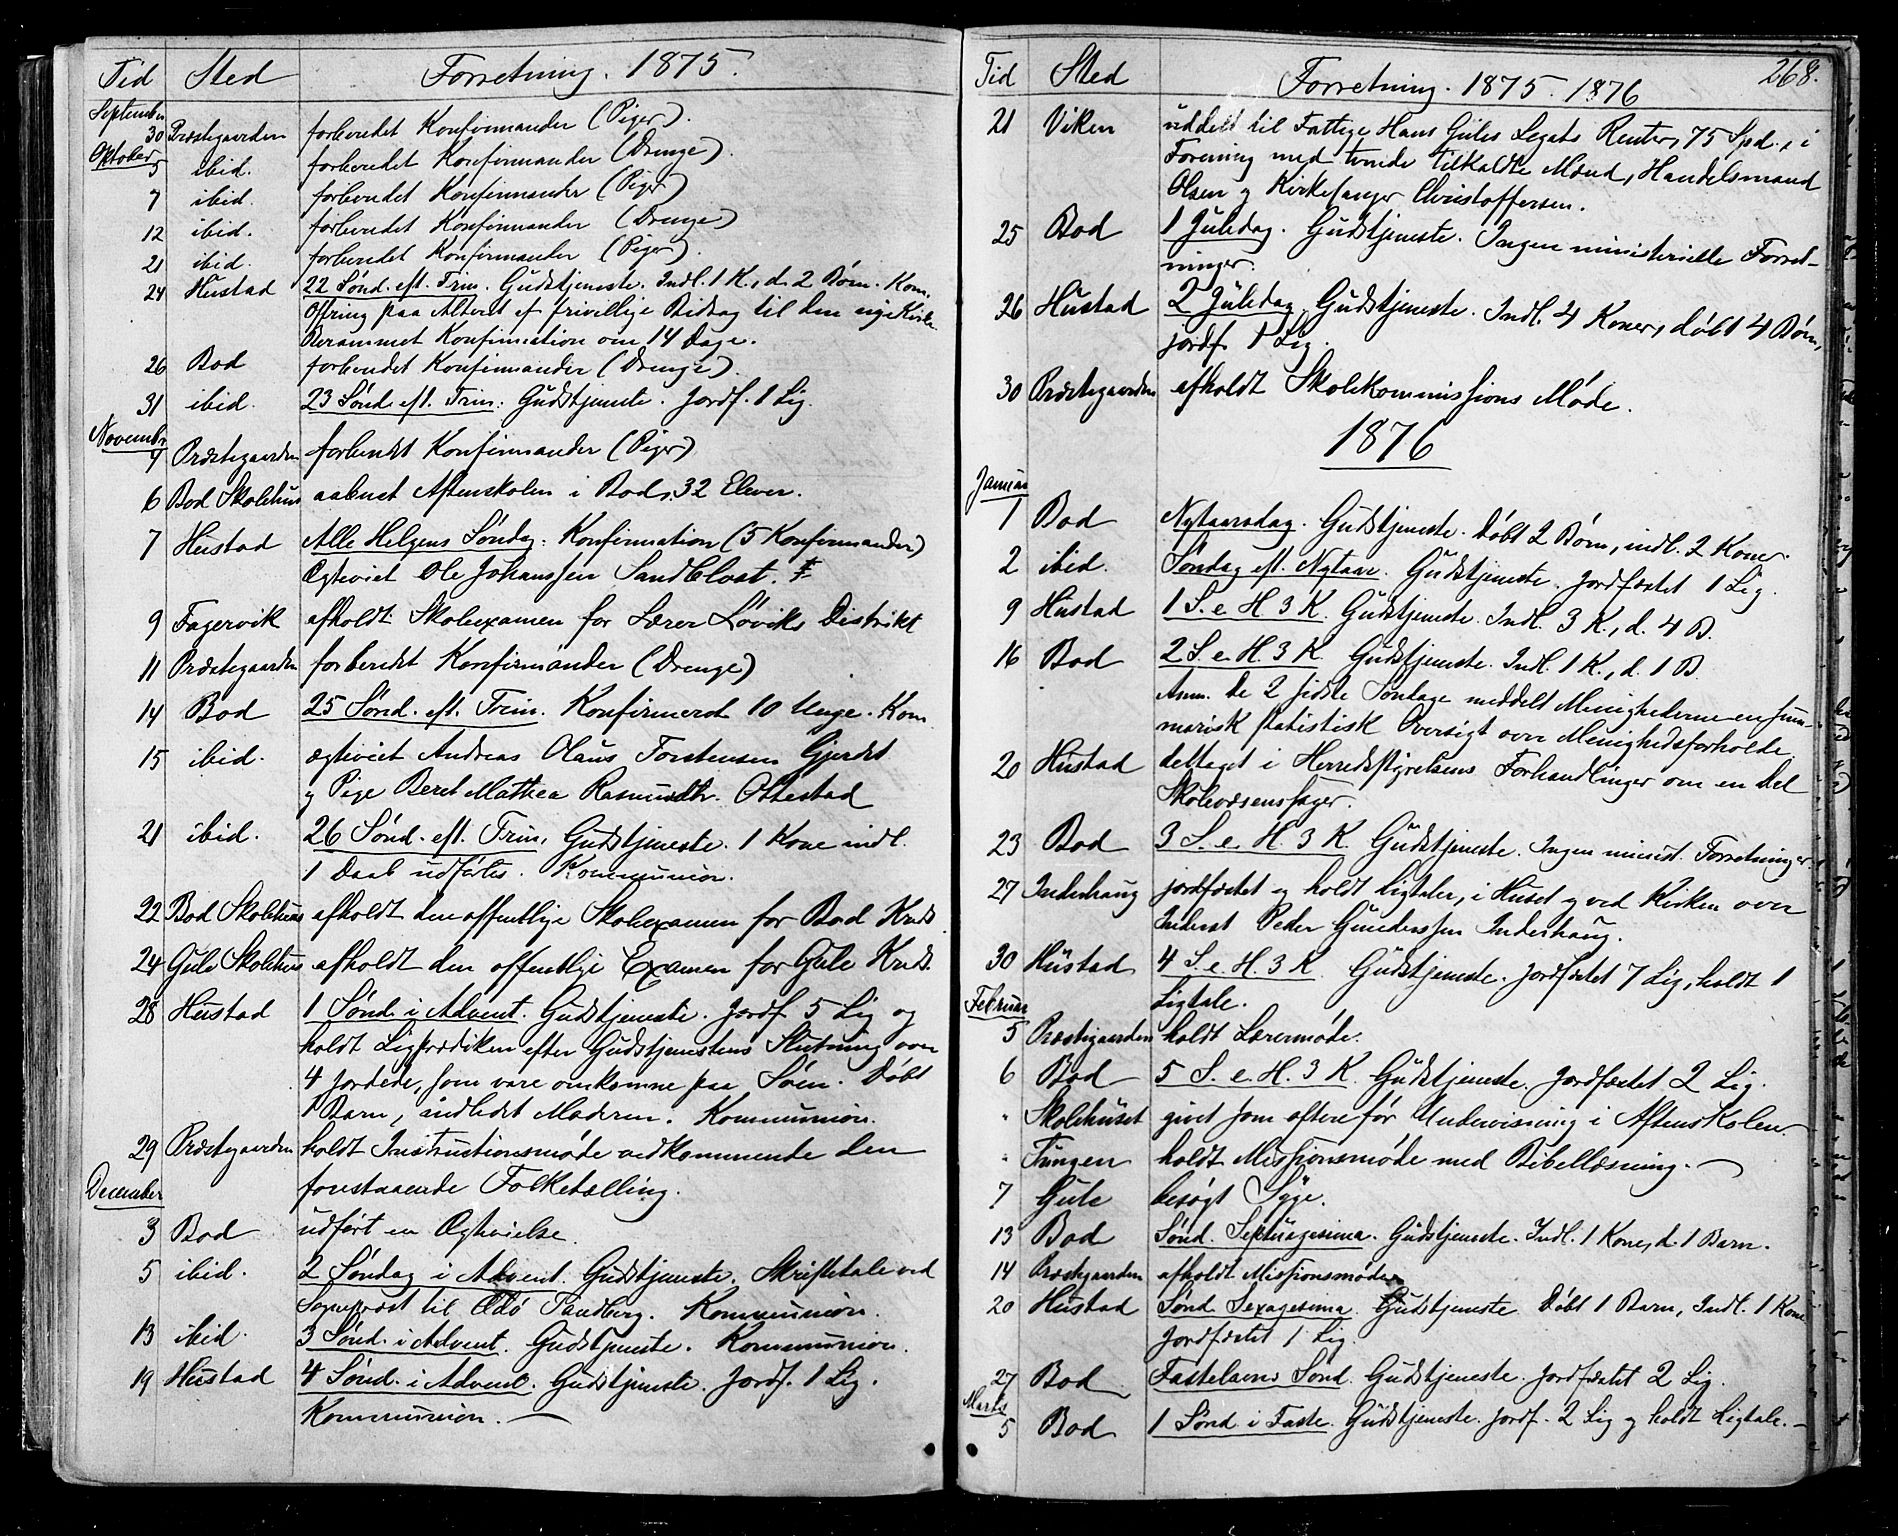 Tid Sted Forretning. 1875.
September
30 Præstegaarden forberedet Konfirmander (Piger).
Oktober
5 ibid. forberedet Konfirmander (Drenge).
7 ibid. forberedet Konfirmander (Piger)
12 ibid. forberedet Konfirmander (Drenge)
21 ibid. forberedet Konfirmander (Piger).
24 Hustad 22 Sønd. eft. Trin. Gudstjeneste. Indl. 1 K., d. 2 Børn. Kom.
Offring paa Alteret af frivillige Bidrag til den nye Kirke.
Berammet Konfirmation om 14 Dage.
26 Bod forberedet Konfirmander (Drenge).
31 ibid. 23 Sønd. eft. Trin. Gudstjeneste. Jordf. 1 Lig.
Novembr
4 Præstegaarden forberedt Konfirmander (Piger)
6 Bod Skolehus aabnet Aftenskolen i Bod, 32 Elever.
7 Hustad Alle Helgens Søndag: Konfirmation (5 Konfirmander)
Ægteviet Ole Johanssen Sandblost.
9 Fagervik afholdt Skolexamen for Lærer Løviks Distrikt
11 Præstegaarden forberedet Konfirmander (Drenge)
14 Bod 25 Sønd. eft. Trin. Konfirmeret 10 Unge. Kom
15 ibid. ægteviet Andreas Olaus Torstensen Gjerdet
og Pige Beret Mathea Rasmusdtr. Ottestad
21 ibid. 26 Sønd. eft. Trin. Gudstjeneste. 1 Kone indl.
1 Daab udførtes. Kommunion.
22 Bod Skolehus afholdt den offentlige Skolexamen for Bod Kreds
24 Gule Skolehus afholdt den offentlige Examen for Gule Kreds.
28 Hustad 1 Sønd. i Advent. Gudstjeneste. Jordf. 5 Lig og
holdt Ligprædiken efter Gudstjenestens Slutning over
4 jordede, som vare omkomne paa Søen. Døbt
1 Barn, indledet Moderen. Kommunion.
29 Præstegaarden holdt Instructionsmøde vedkommende den
forestaaende Folketælling.
December
3 Bod udført en Ægtevielse.
5 ibid. 2 Søndag i Advent. Gudstjeneste. Skriftetale ved
Sognepræst til Ædø Sandberg. Kommunion.
13 ibid. 3 Sønd. i Advent. Gudstjeneste. Kommunion.
19 Hustad 4 Sønd. i Advent. Gudstjeneste. Jordf. 1 Lig.
Kommunion.
Tid Sted Forretning. 1875. 1876 268.
21 Viken uddelt til Fattige Hans Gules Legats Renter, 75 Spd., i
Forening med tvende tilkaldte Mænd, Handelsmand
Olsen og Kirkesanger Christoffersen.
25 Bod 1 Juledag. Gudstjeneste. Ingen ministerielle Forret-
ninger.
26 Hustad 2 Juledag. Gudstjeneste. Indl. 4 Koner, døbt 4 Børn,
jordf. 1 Lig.
30 Præstegaarden afholdt Skolekommissions Møde.
1876
Januar
1 Bod Nytaarsdag. Gudstjeneste. Døbt 2 Børn, indl. 2 Koner.
2 ibid. Søndag eft. Nytaar. Gudstjeneste. Jordfæstet 1 Lig.
9 Hustad 1 S. e. H. 3 K. Gudstjeneste. Indl. 3 K., d. 4 B.
16 Bod 2 S. e. H. 3 K. Gudstjeneste. Indl. 1 K., d. 1 B.
Anm. De 2 sidste Søndage meddelt Menighederne en sum-
marisk statistisk Oversigt over Menighedsforholde
20 Hustad deltaget i Herredsstyrelsens Forhandlinger om en Del
Skolevæsenssager.
23 Bod 3 S. e. H. 3 K. Gudstjeneste. Ingen minist. Forretninger.
27 Inderhaug jordfæstet og holdt Ligtaler, i Huset og ved Kirken over
Inderst Peder Gunderssen Inderhaug.
30 Hustad 4 S. e. H. 3 K. Gudstjeneste. Jordfæstet 7 Lig, holdt 1
Ligtale.
Februar
5 Præstegaarden holdt Lærermøde.
6 Bod 5 S. e. H. 3 K. Gudstjeneste. Jordfæstet 2 Lig.
" Skolehuset givet som oftere før Undervisning i Aftenskolen.
" Tungen holdt Missionsmøde med Bibellæsning.
7 Gule besøgt Syge.
13 Bod Sønd. Septuagesima. Gudstjeneste. Indl. 1 Kone, d. 1 Barn.
14 Præstegaarden afholdt Missionsmøde
20 Hustad Sønd. Sexagesima. Gudstjeneste. Døbt 1 Barn, Indl. 1 Kone
Jordfæstet 1 Lig.
27 Bod Fastelavns Sønd. Gudstjeneste. Jordfæstet 2 Lig.
Marts
5 Bod 1 Sønd i Faste. Gudstjeneste. Jordf. 2 Lig og holdt Ligtale.